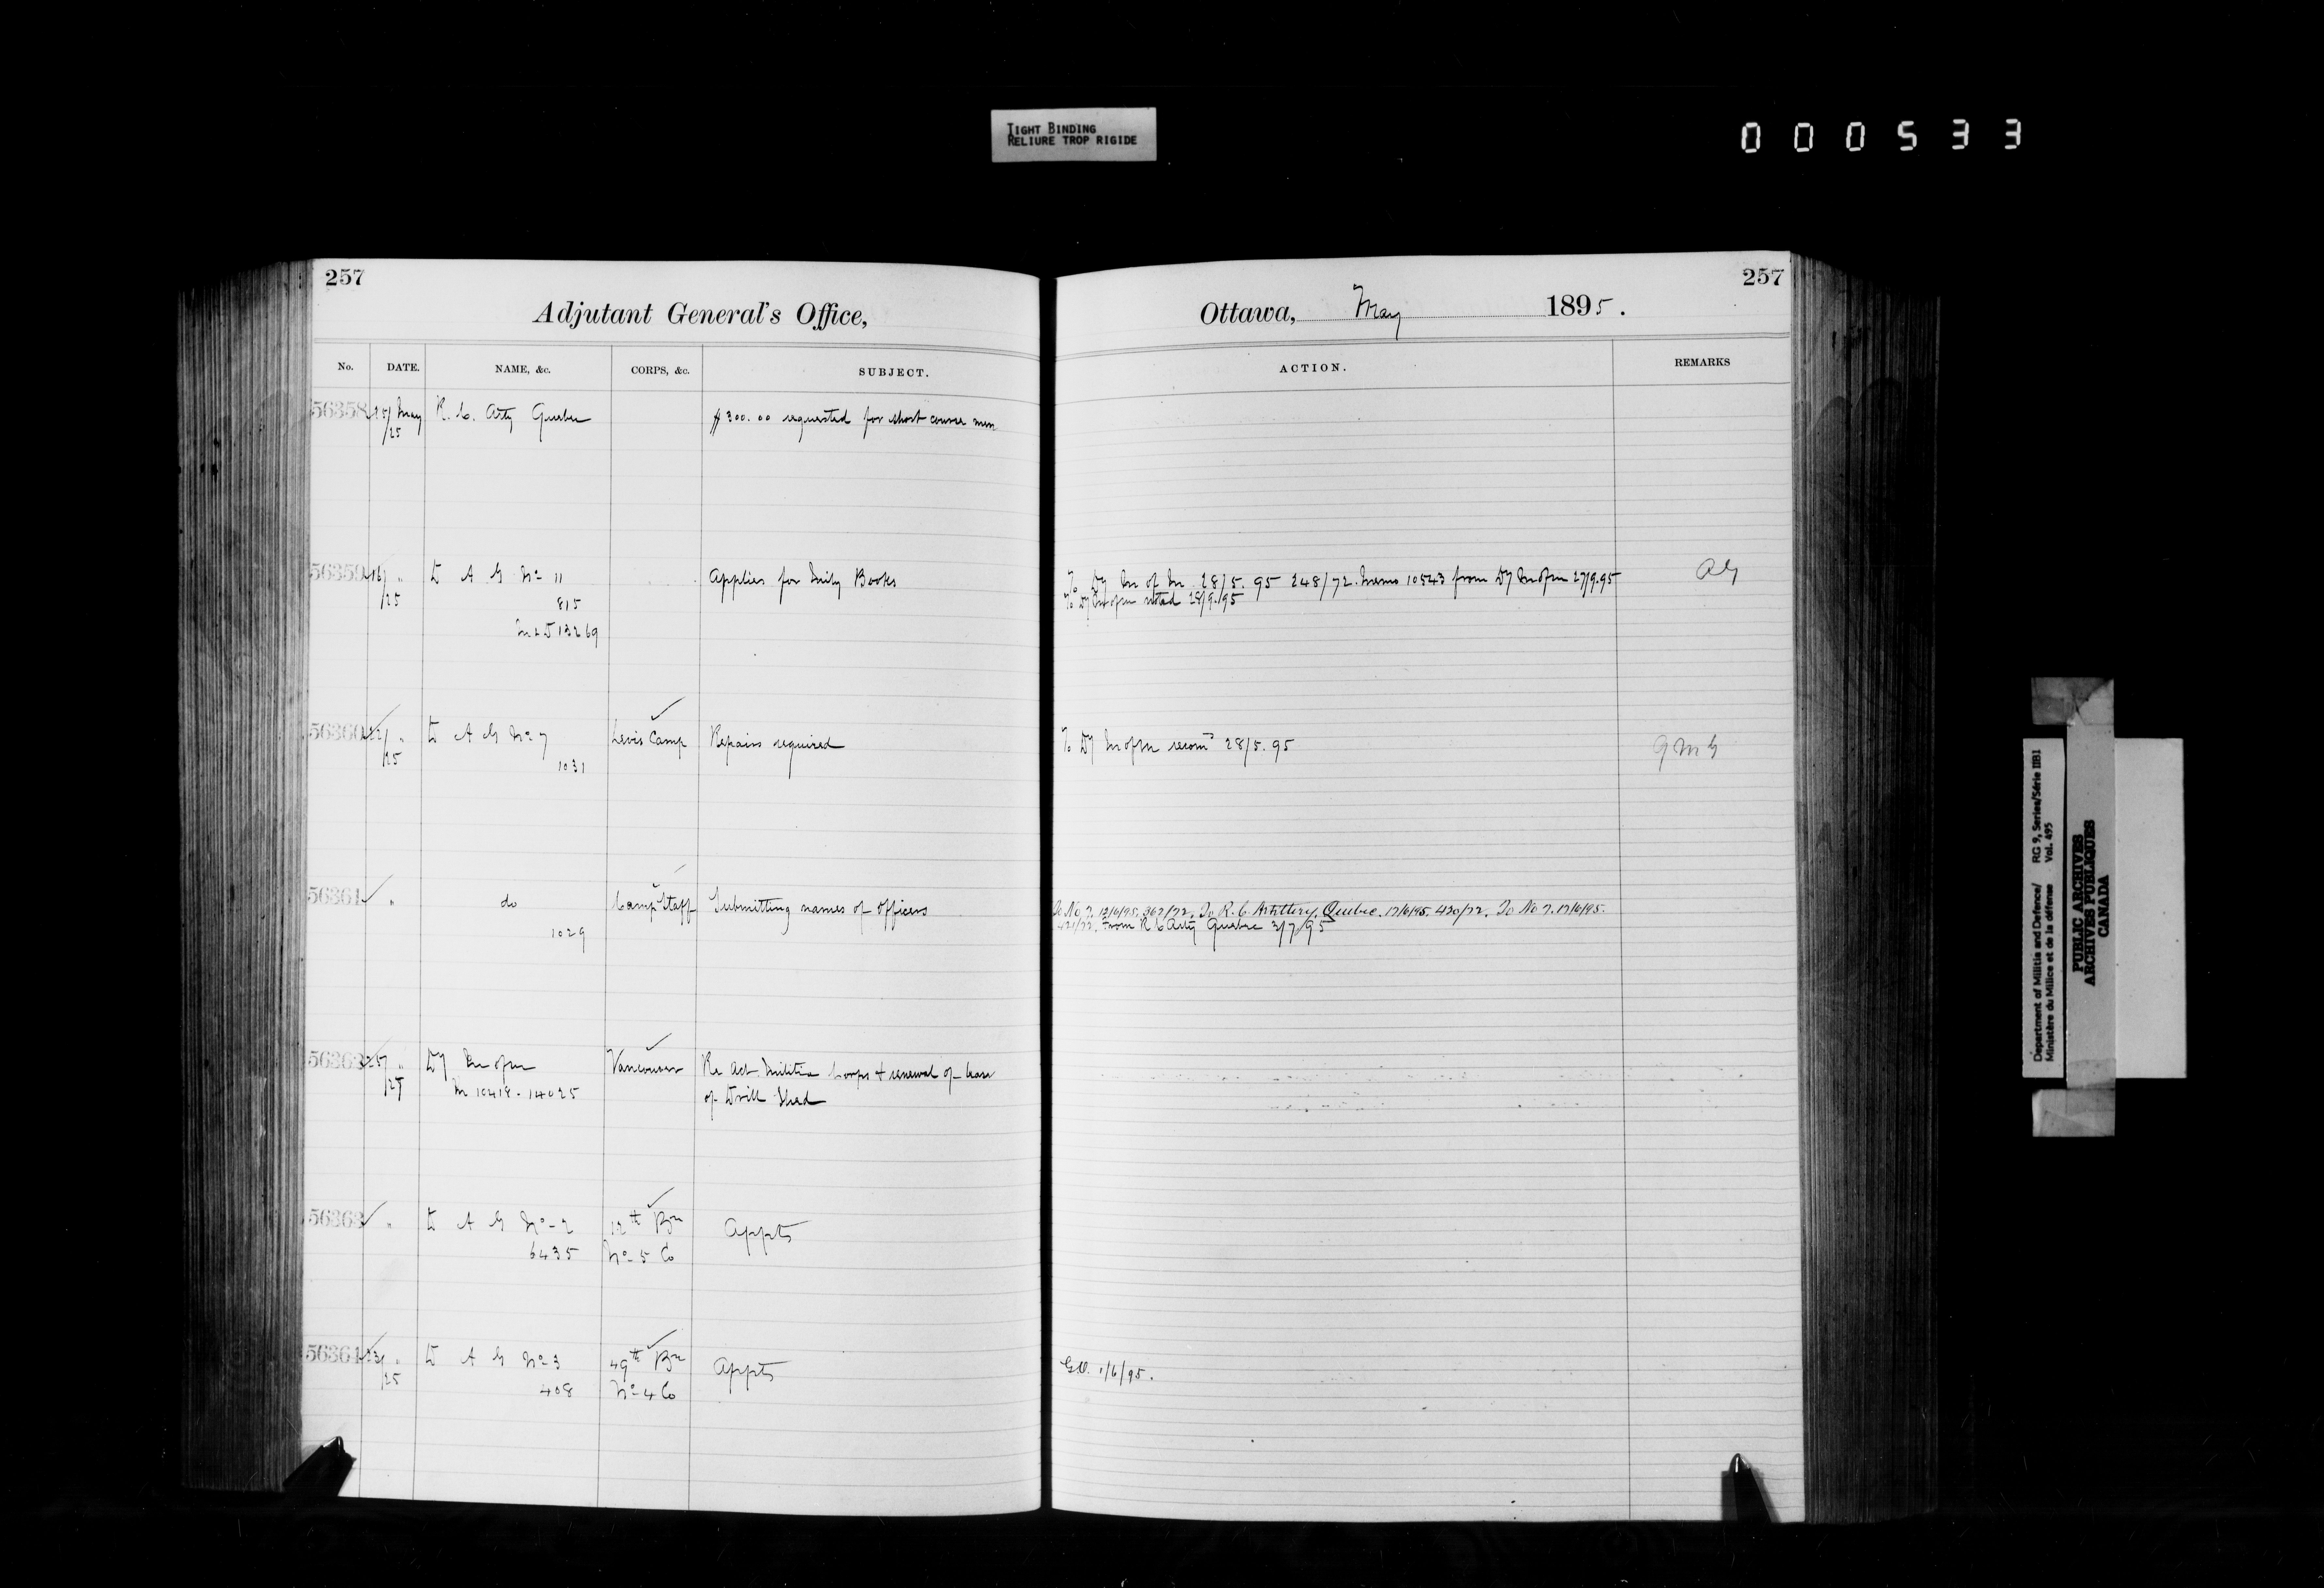 TIGHT BINDING
RELIURE TROP RIGIDE
000533
257
Adjutant General's Office,
No. DATE. NAME, &c. CORPS, &c. SUBJECT.
56358 25/25 May R. C. Arty Quebec $300.00 requested for short course men
56359 16/25 " D A G No 11 Applies for Mily Books
815
13269
56360 22/25 " D A G No 7 Levis Camp Repairs required
1031
56361 " do Camp Staff Submitting names of officers
1029
56362 25/27 " Dy M of M Vancouver Re Act. Militia Corps & renewal of lease
M 10418 . 14025 of Drill Shed
56363 " D A G No 2 12th Bn Appts
6435 No 5 Co
56364 23/25 " D A G No 3 49th Bn Appts
408 No 4 Co
257
Ottawa, May 1895.
ACTION. REMARKS
To Dy M of M 28/5.95 248/72. Memo 10543 from Dy M of M 27/9.95 AG
To Dy M of M noted 28/9/95
To Dy M of M recomd 28/5.95 QMG
To No 7. 12/6/95. 362/72. To R. C. Artillery, Quebec. 17/6/95. 420/72. To No 7. 17/6/95.
421/72. From R C Arty Quebec 3/7/95
G.O. 1/6/95.
Department of Militia and Defence/ RG 9, Series/Série IIB1
Ministère du Milice et de la défense Vol. 495
PUBLIC ARCHIVES
ARCHIVES PUBLIQUES
CANADA